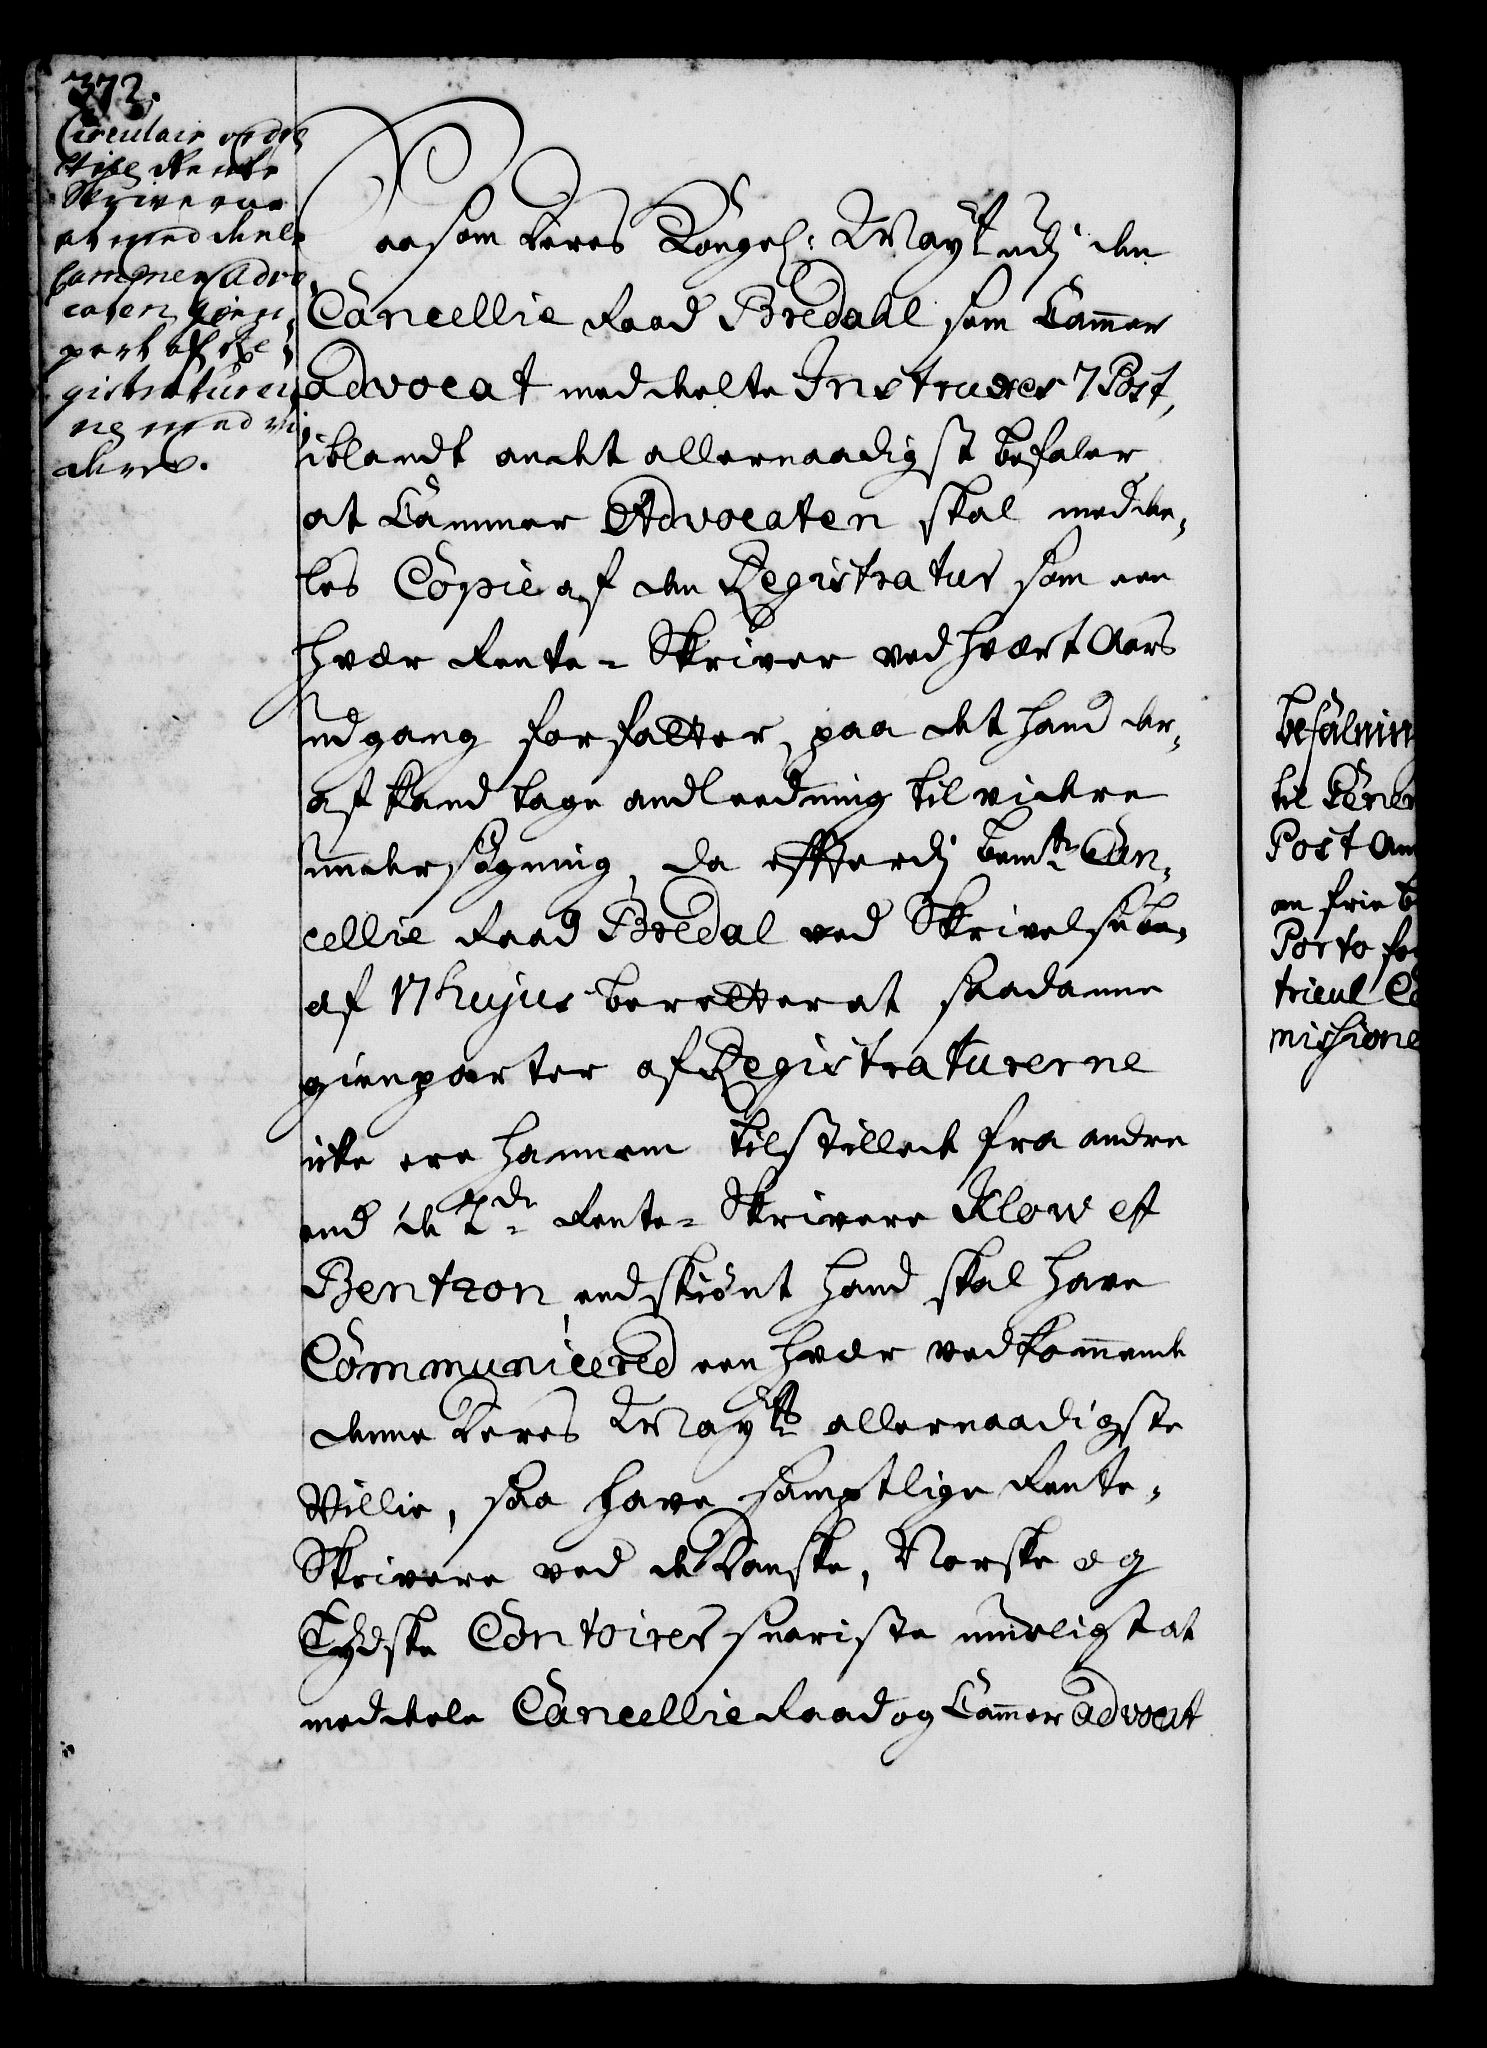 372.
Circulair ordre
til Rente
Skriverne
at meddeele
Cammer Advo
caten Gien
part af Re
gistraturer
ne med vi
dere.
Saasom deres Kongel: Mayt udj den
Cancellie Raad Bredahl som Cammer
Advocat meddelte Instruxes 7 Post,
iblandt andet allernaadigst befaler
at Cammer Advocaten skal medde-
les Copie af den Registratur som een
hver Rente-Skriver ved hvert Aars
udgang forfatter, paa det hand der-
af kand tage andleedning til videre
undersøgning, da effterdj bemte Can-
cellie Raad Bredal ved Skrivelse
af 17 hujus beretter at saadanne
gienparter af Registraturerne
icke ere hannem tilstilled fra andre
end de 2de Rente-Skrivere Klow et
Bentzon, endskiønt hand skal have
Communicered een hver vedkommende
denne deres Mayts allernaadigste
Villie, saa have samptlige Rente-
Skrivere ved de Danske, Norske og
Tydske Contoirer sneriste mueligst at
meddele Cancellie Raad og Cammer Advocat
befalning
til Gener
Post Am
om frie b
Porto fo
tricul Co
missione